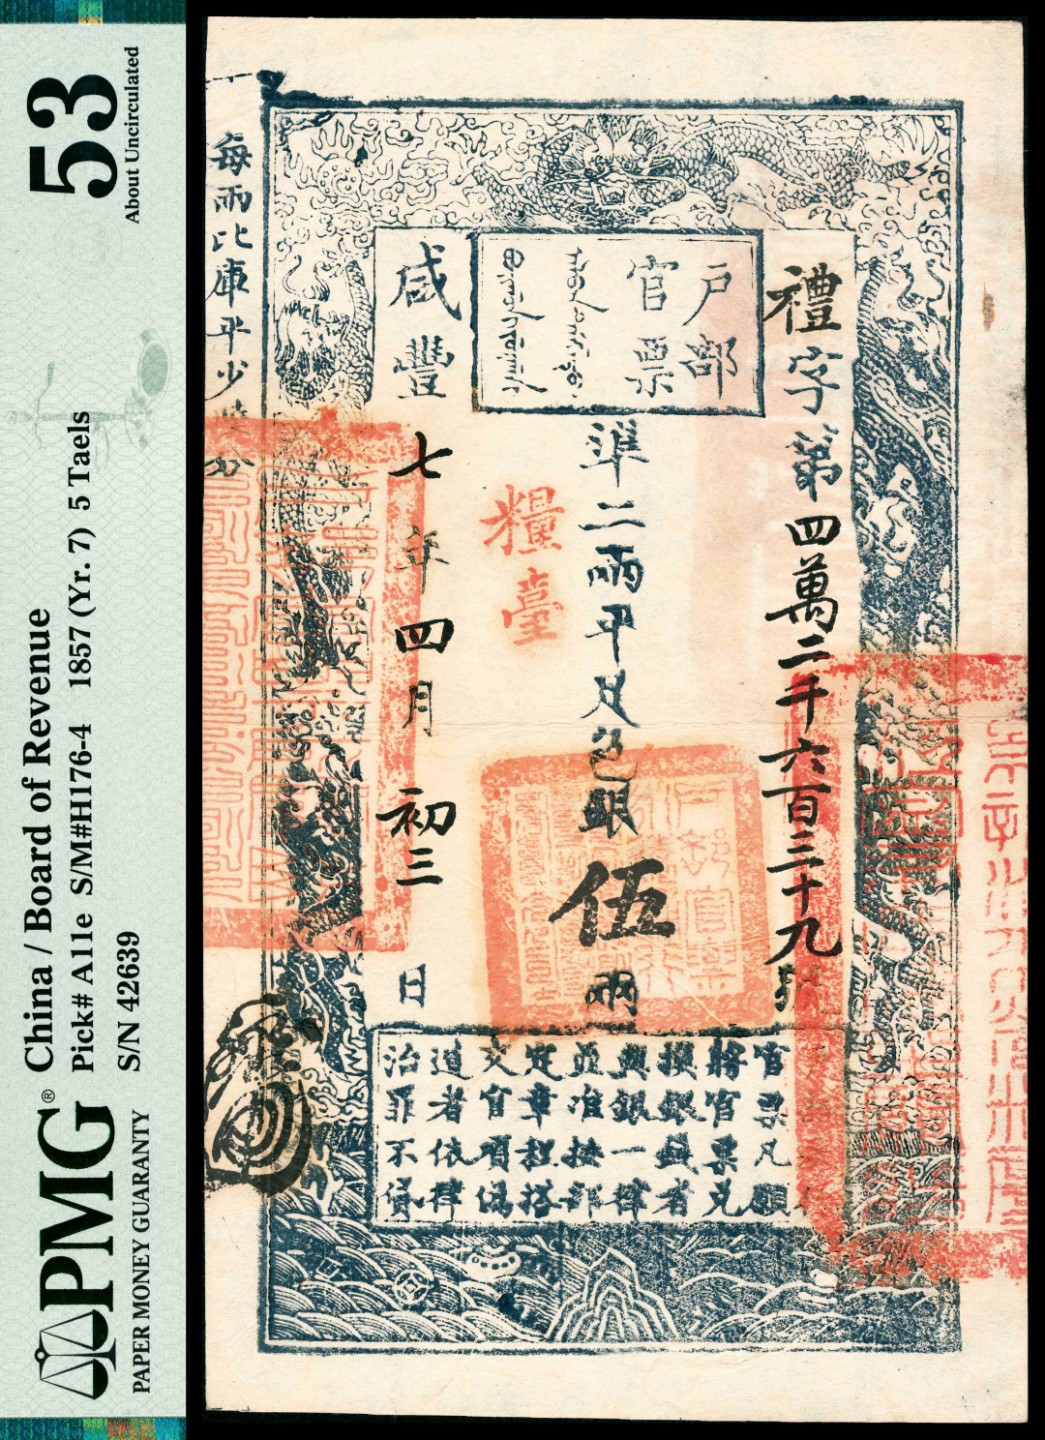 China / Board of Revenue
Pick# A11e S/M#H176-4 1857 (Yr. 7) 5 Taels
S/N 42639
53
About Uncirculated
PMG®
PAPER MONEY GUARANTY
戶部
官票
禮字第四萬二千六百三十九號
準二兩平足色銀伍兩
糧臺
咸豐七年四月初三日
每兩比庫平少分
官票凡願
將官票兌
換銀錢者
與銀一律
並准按部
定章程搭
交官項偽
造者依律
治罪不貸